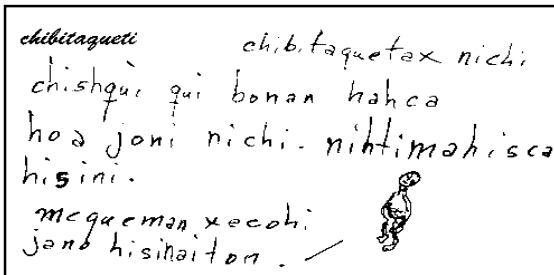 chibitaqueti
chibitaquetax nichi
chishquì qui bonan hahca
hoa joni nichi. nihtimahisca
hisini.
mequeman xecohi
jano hisinaiton.